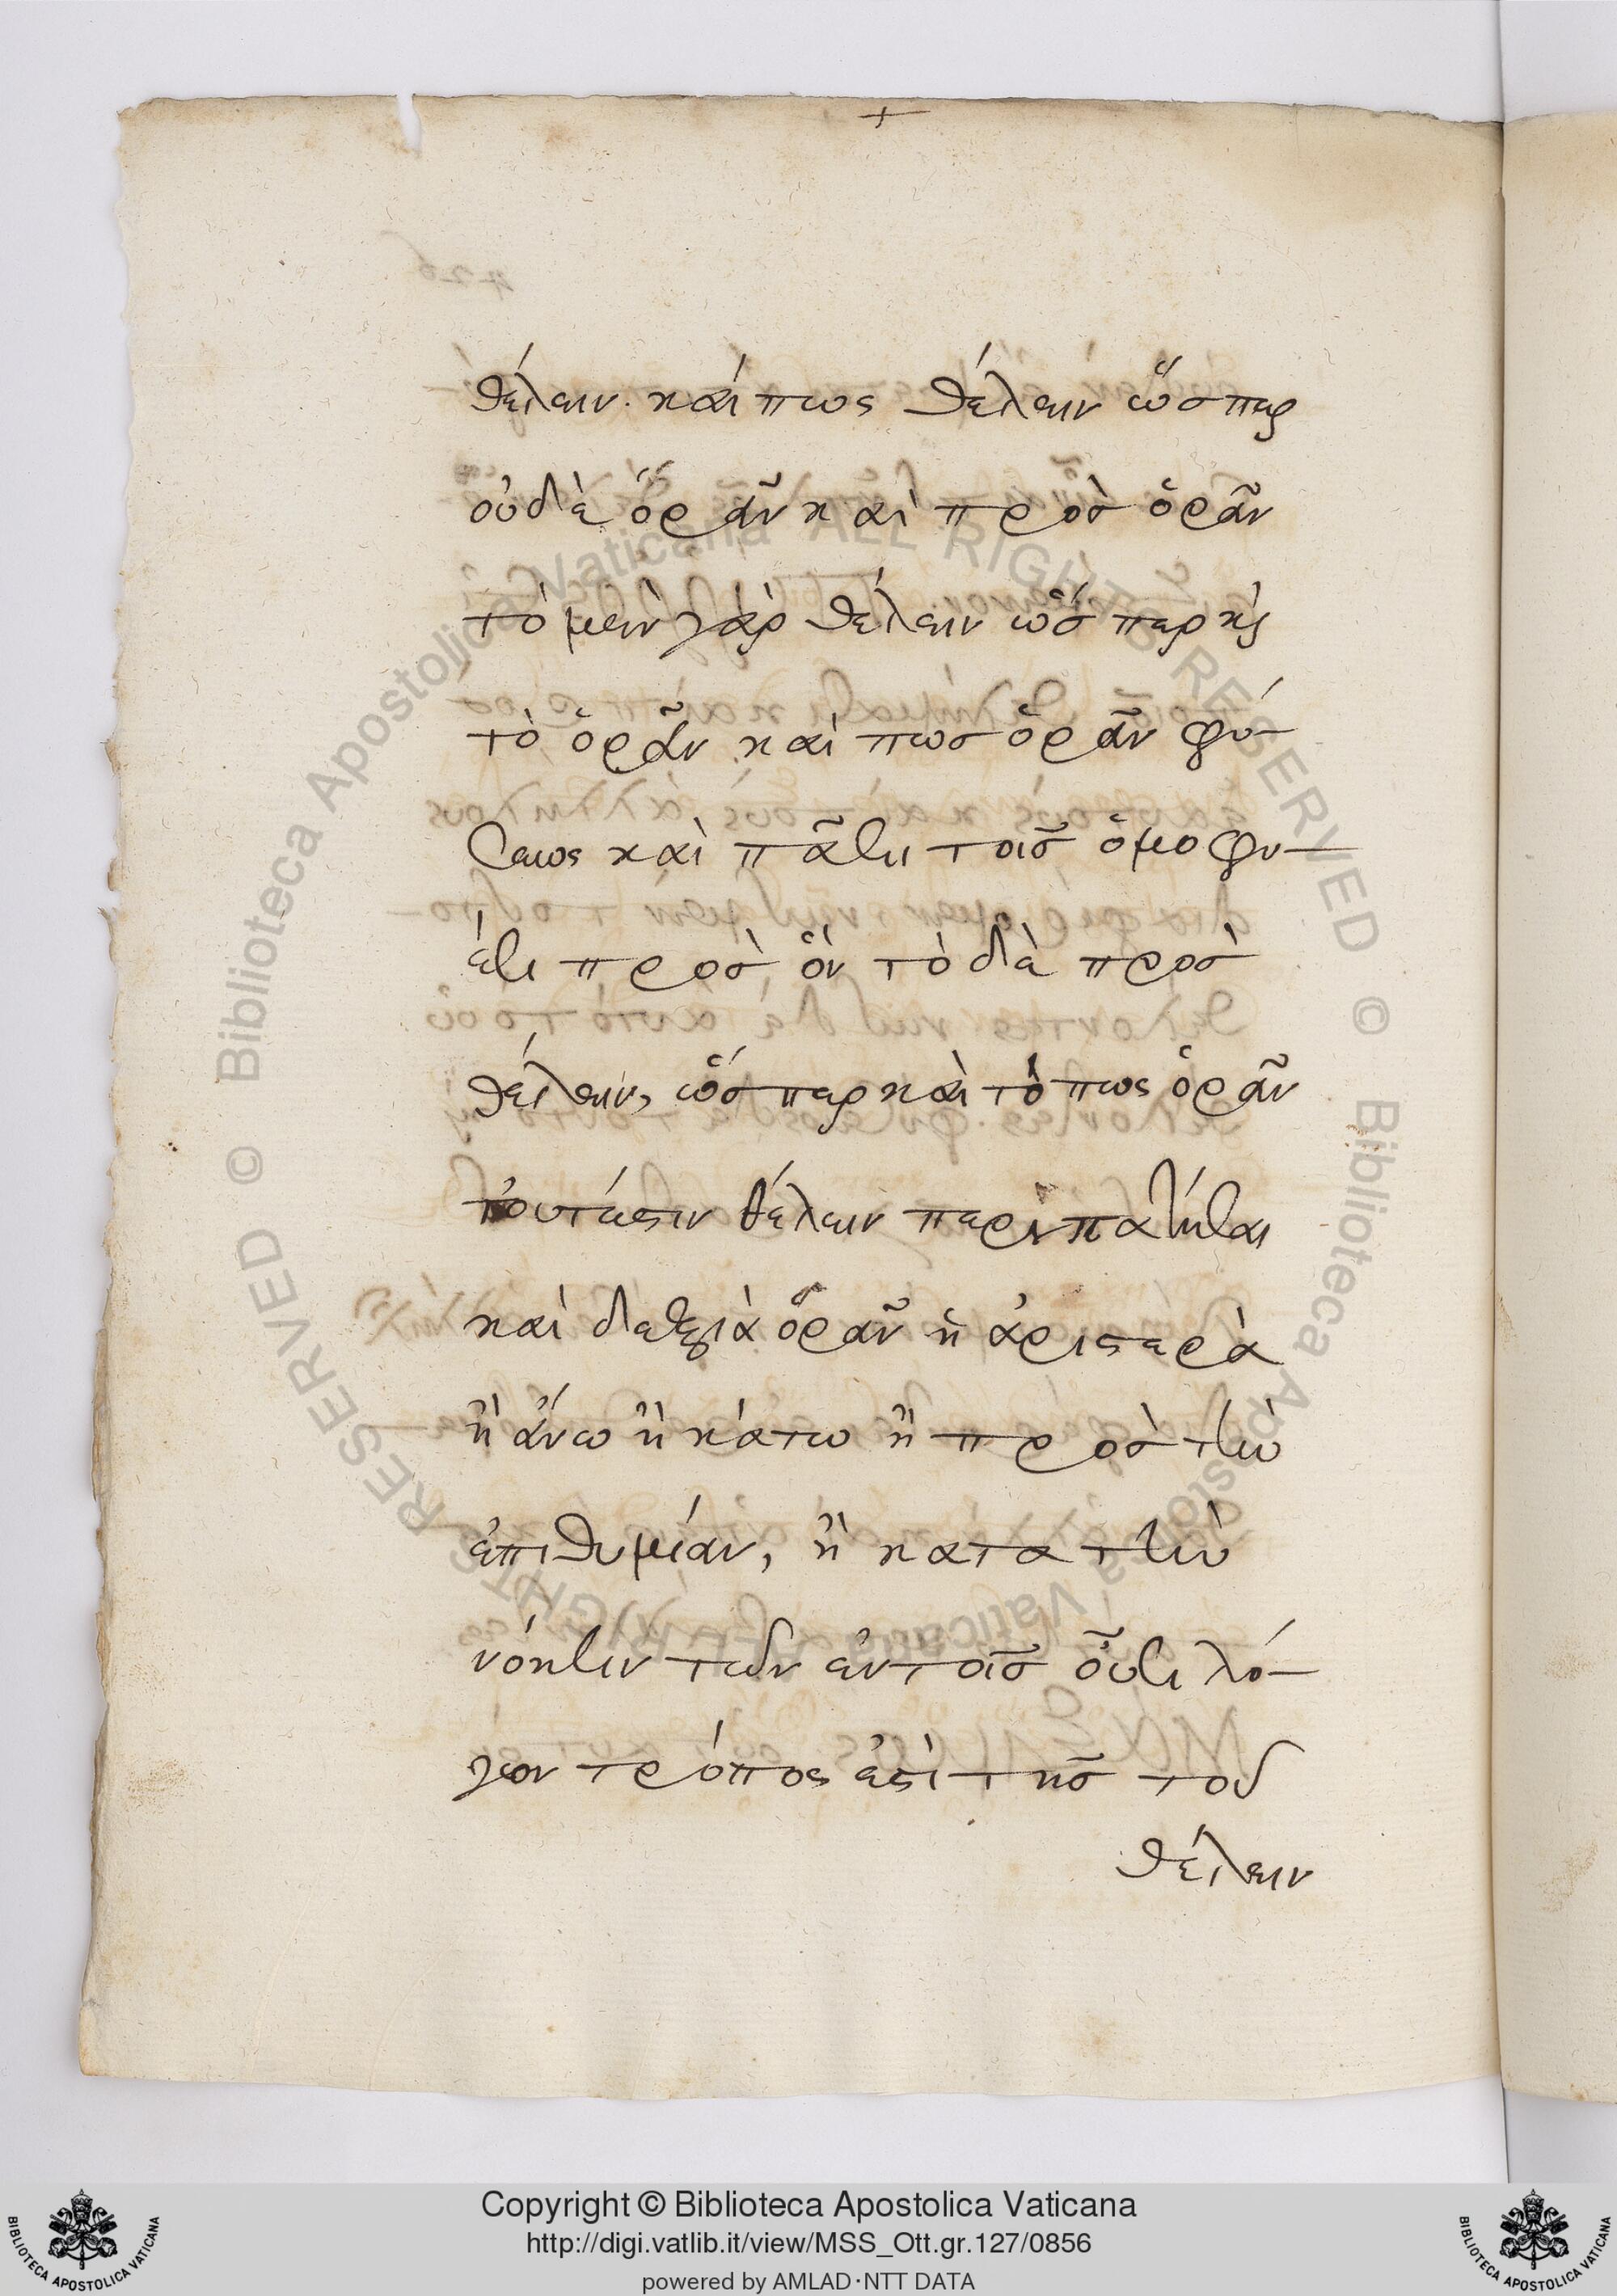 θέλειν. κάι πως θέλειν ὥσπερ
οὐδὲ ὁρᾶν καὶ πρὸσ ὁρᾶν
τὸ μὲν γὰρ θέλειν ὥσπερ κς
τὸ ὁρᾶν καὶ πωσ ὁρᾶν φύ-
σεως καὶ πᾶσι τοῖσ ὁμοφυ-
έσι προσὸν τὸ δὲ πρὸσ
θέλειν, ὥσπερ καὶ τὸ πως ὁρᾶν
τουτέστιν θέλειν περιπατῆσαι
καὶ δεξιὰ ὁρᾶν ἢ ἀριστερὰ
ἢ ἄνω ἢ κάτω ἢ πρὸσ τὴν
ἐπιθυμίαν, ἢ κατα τὴν
νόησιν τῶν ἐν τοῖσ οὖσι λό-
γων τρόπος ἐστὶ τῆσ τοῦ
θέλειν
Copyright © Biblioteca Apostolica Vaticana
http://digi.vatlib.it/view/MSS_Ott.gr.127/0856
powered by AMLAD·NTT DATA
BIBLIOTECA APOSTOLICA VATICANA
BIBLIOTECA APOSTOLICA VATICANA
© Biblioteca Apostolica Vaticana ALL RIGHTS RESERVED
© Biblioteca Apostolica Vaticana ALL RIGHTS RESERVED